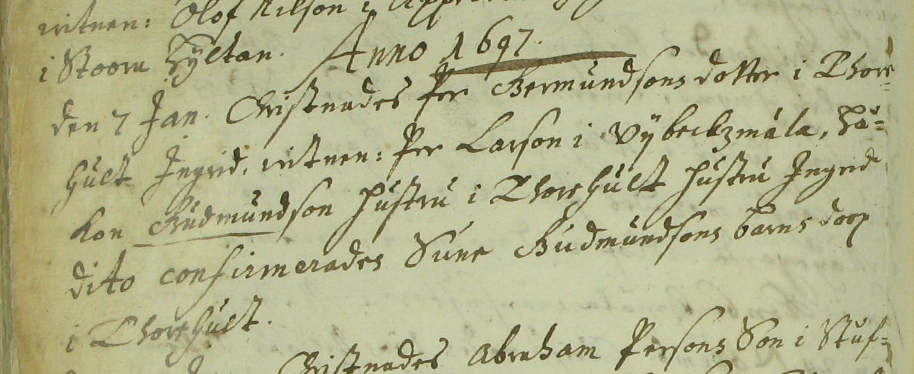 witnen: Olof Nilson i
i Stoora Hyltan. Anno 1697.
den 7 Jan. Christnades Per Germundsons dotter i Thore-
hult Ingrid. witnen: Per Larson i Wybeckzmåla, Hå-
kon Gudmundson hustru i Thorehult hustru Ingrid
dito confirmerades Sune Gudmundsons barns doop
i Thorehult.
Christnades Abraham Persons Son i Stuf-